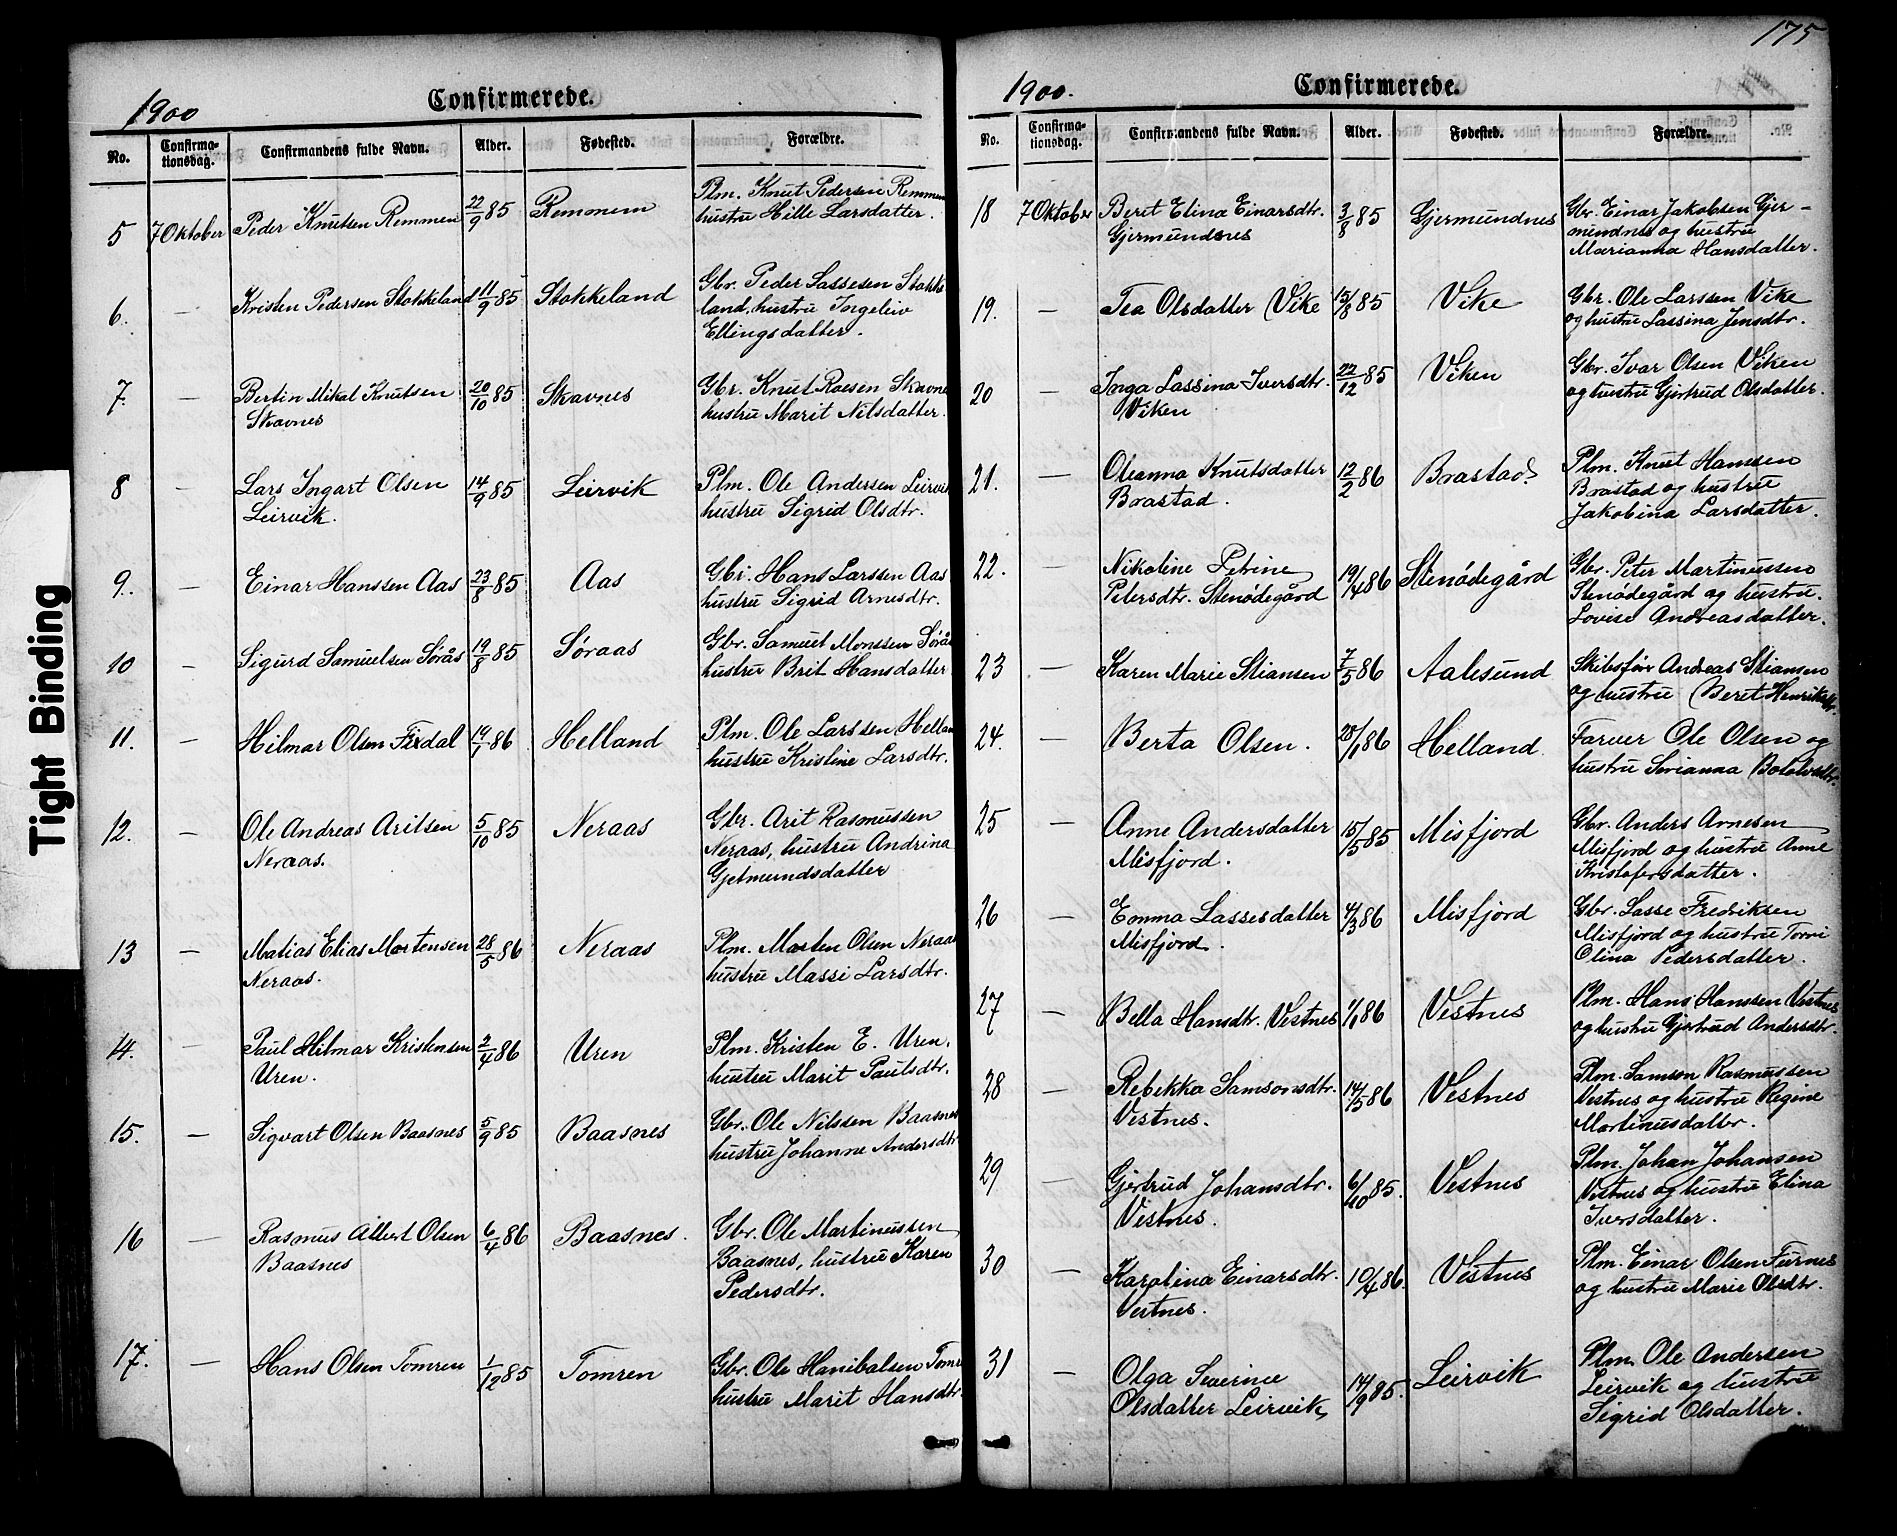 175
1900
Confirmerede.
No.
Confirma-
tionsdag.
Confirmandens fulde Navn.
Alder.
Fødested.
Forældre.
5
7 Oktober
Peder Knutsen Remmen
22/9 85
Remmem
Plm. Knut Pedersen Remmem
hustru Hille Larsdatter.
6.
—
Kristen Pedersen Stokkeland
11/9 85
Stokkeland
Gbr. Peder Lassesen Stokke
land, hustru Ingeleiv
Ellingsdatter.
7.
—
Bertin Mikal Knutsen
Skavnes
20/10 85
Skavnes
Gbr. Knut Raesen Skavne
hustru Marit Nilsdatter.
8
—
Lars Ingart Olsen
Leirvik.
14/9 85
Leirvik
Plm. Ole Andersen Leirvik
hustru Sigrid Olsdtr.
9.
—
Einar Hanssen Aas
23/8 85
Aas
Gbr. Hans Larssen Aas
hustru Sigrid Arnesdtr.
10
—
Sigurd Samuelsen Sørås
19/8 85
Søraas
Gbr. Samuel Monssen Sørås
hustru Brit Hansdatter
11.
—
Hilmar Olsen Fixdal
19/1 86
Helland
Plm. Ole Larssen Hellan
hustru Kristine Larsdtr.
12.
—
Ole Andreas Aritsen
Neraas.
5/10 85
Neraas
Gbr. Arit Rasmussen
Neraas, hustru Andrina
Gjetmundsdatter
13
—
Matias Elias Mortensen
Neraas.
28/5 86
Neraas
Plm. Morten Olsen Neraas
hustru Massi Larsdtr.
14.
—
Paul Hilmar Kristensen
Uren.
2/4 86
Uren
Plm. Kristen E. Uren,
hustru Marit Paulsdtr.
15.
—
Sigvart Olsen Baasnes
5/9 85
Baasnes
Gbr. Ole Nilssen Baasnes
hustru Johanne Andersdtr
16
—
Rasmus Albert Olsen
Baasnes
6/4 86
Baasnes.
Gbr. Ole Martinussen
Baasnes, hustru Karen
Pedersdtr.
17.
—
Hans Olsen Tomren
1/12 85
Tomren
Gbr. Ole Hanibalsen Tomr
hustru Marit Hansdtr.
1900.
Confirmerede.
No.
Confirma-
tionsdag.
Confirmandens fulde Navn.
Alder.
Fødested.
Forældre.
18
7 Oktober
Beret Elina Einarsdtr.
Gjermundsnes
3/8 85
Gjermundnes
Gbr. Einar Jakobsen Gjer-
mundnes og hustru
Marianna Hansdatter.
19.
—
Tea Olsdatter Vike
15/8 85
Vike
Gbr. Ole Larssen Vike
og hustru Lassina Jensdtr.
20
—
Inga Lassina Iversdtr.
Viken
22/12 85
Viken
Gbr. Ivar Olsen Viken
og hustru Gjertrud Olsdatter.
21.
—
Oleanna Knutsdatter
Brastad.
12/2 86
Brastad
Plm. Knut Hanssen
Brastad og hustru
Jakobina Larsdatter.
22.
—
Nikoline Petrine
Petersdtr. Stenødegård
19/4 86
Stenødegård
Gbr. Peter Martinussen
Stenødegård og hustru.
Lovise Andreasdatter.
23
—
Karen Marie Stiansen
7/5 86
Aalesund
Skibsfør Andreas Stiansen
og hustru Beret Henriksdtr.
24.
—
Berta Olsen.
28/1 86
Helland
Farver Ole Olsen og
hustru Serianna Bololvsdtr.
25
—
Anne Andersdatter
Misfjord.
15/5 85
Misfjord
Gbr. Anders Arnesen
Misfjord og hustru Anne
Kristofersdatter.
26
—
Emma Lassesdatter
Misfjord.
4/3 86
Misfjord
Gbr. Lasse Fredriksen
Misfjord og hustru Torri
Olina Pedersdatter.
27
—
Bella Hansdtr. Vestnes
1/1 86
Vestnes
Plm. Hans Hanssen Vestnes
og hustru Gjertrud Andersdtr.
28
—
Rebekka Samsonsdtr.
Vestnes.
14/5 86
Vestnes
Plm. Samson Rasmussen
Vestnes og hustru Regine
Martinusdatter.
29
—
Gjertrud Johansdtr.
Vestnes.
6/10 85.
Vestnes
Plm. Johan Johansen
Vestnes og hustru Elina
Iversdatter.
30
—
Karolina Einarsdtr.
Vestnes.
10/4 86.
Vestnes
Plm. Einar Olsen Furnes
og hustru Marie Olsdtr.
31
—
Olga Severine
Olsdatter Leirvik
14/9 85.
Leirvik
Plm. Ole Andersen
Leirvik og hustru
Sigrid Olsdatter.
Tight Binding